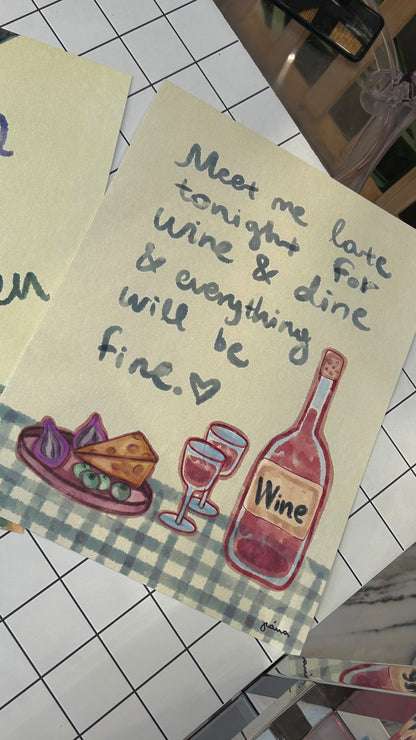 Meet me late
tonight for
wine & dine
& everything
will be
fine. ♡
Wine